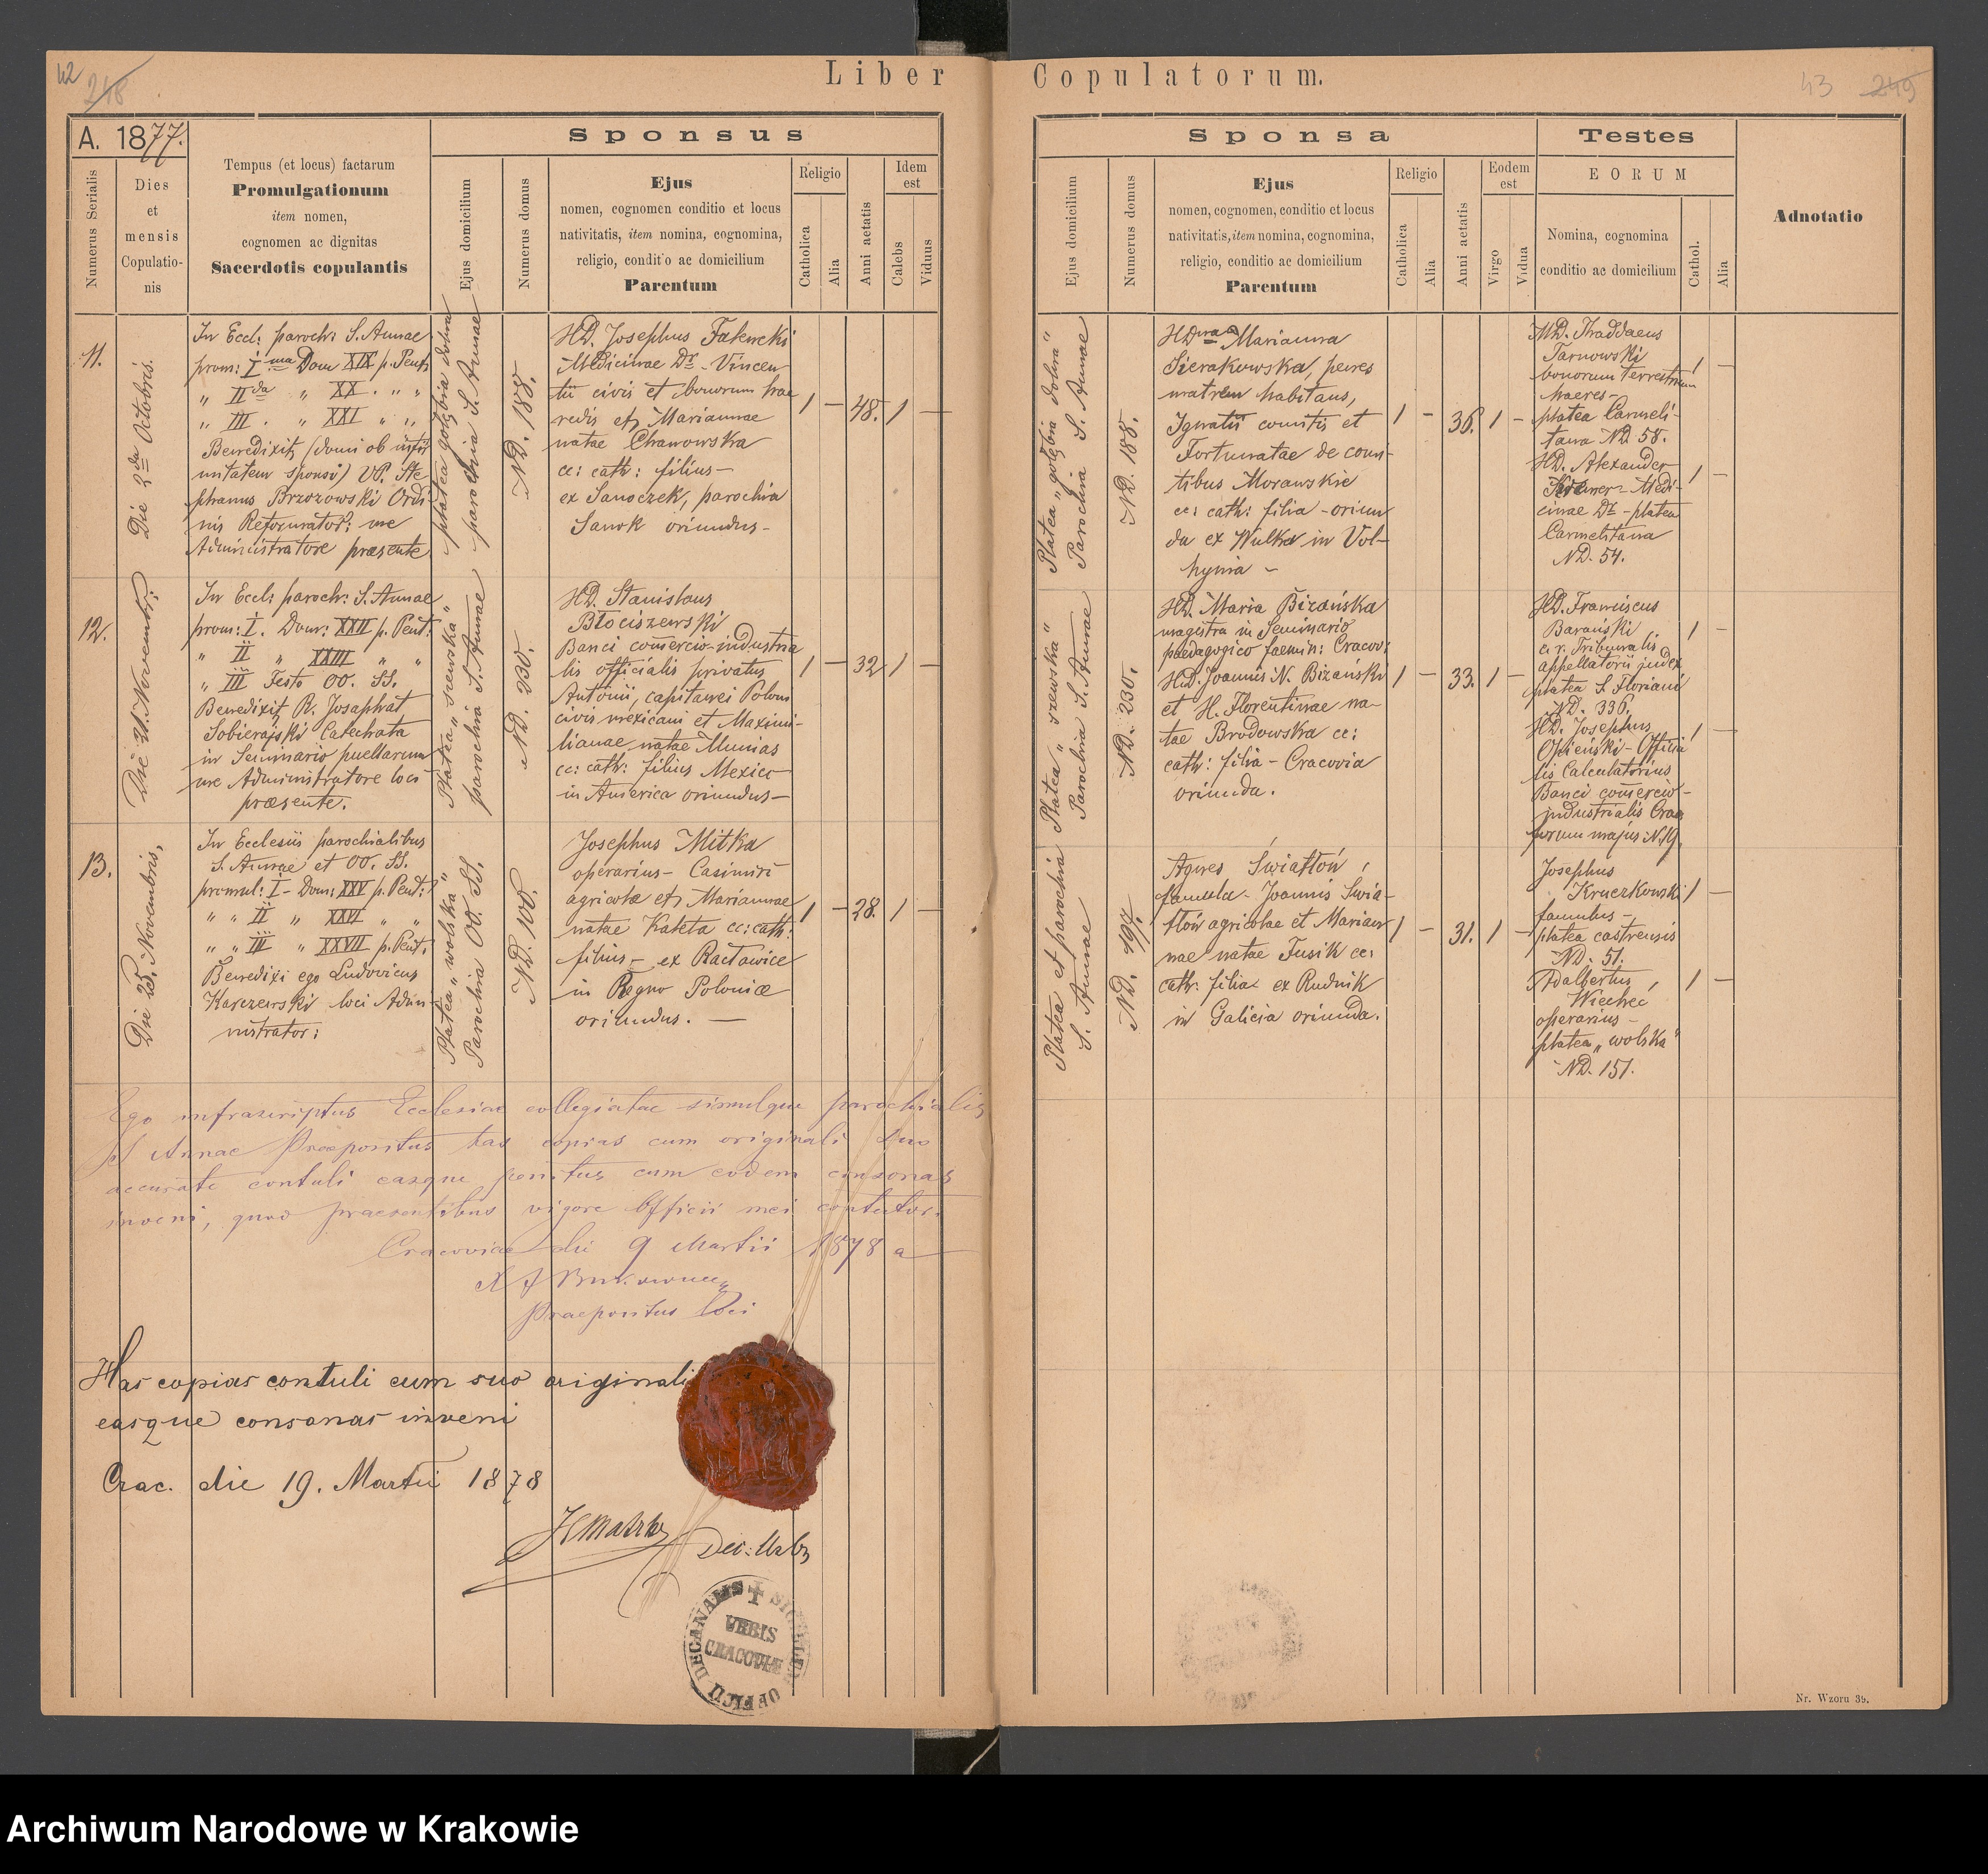 42
248
Liber Copulatorum.
43 249
A. 1877.
Numerus Serialis
Dies
et
mensis
Copulatio-
nis
Tempus (et locus) factarum
Promulgationum
item nomen,
cognomen ac dignitas
Sacerdotis copulantis
Sponsus
Ejus domicilium
Numerus domus
Ejus
nomen, cognomen conditio et locus
nativitatis, item nomina, cognomina,
religio, conditio ac domicilium
Parentum
Religio
Catholica
Alia
Anni aetatis
Idem
est
Calebs
Viduus
Sponsa
Ejus domicilium
Numerus domus
Ejus
nomen, cognomen, conditio et locus
nativitatis, item nomina, cognomina,
religio, conditio ac domicilium
Parentum
Religio
Catholica
Alia
Anni aetatis
Eodem
est
Virgo
Vidua
Testes
EORUM
Nomina, cognomina
conditio ac domicilium
Cathol.
Alia
Adnotatio
11.
Die 2da Octobris.
In Eccl: paroch: S. Annae
prom: I ma Dom XIX p. Pent:
" II da " XX. " "
" III. " XXI " "
Benedixit (domi ob infir
mitatem sponsi) VP. Ste-
phanus Brzozowski Ordi-
nis Reformator: me
Administratore praesente
platea gołębia dolna
parochia S. Annae
ND. 188.
HD. Josephus
Medicinae Dr - Vincen
tii civis et bonorum hae
redis et Mariannae
natae Chanowska
cc: cath: filius -
ex Sanoczek, parochia
Sanok oriundus -
1 - 48. 1 -
Platea "gołębia dolna"
Parochia S. Annae
ND. 188.
HDna Marianna
Sierakowska, penes
matrem habitans,
Ignatii comitis et
Fortunatae de comi-
tibus Morawskie
cc: cath: filia - oriun
da ex Wulka in Vol-
hynia -
1 - 36. 1 -
MD. Thaddaeus
Tarnowski
bonorum terrestrium
haeres -
platea Carmeli-
tana ND 58.
1 -
HD. Alexander
Kremer - Medi-
cinae Dr - platea
Carmelitana
ND. 54.
1 -
12.
Die 21. Novembr:
In Eccl: paroch: S. Annae
prom: I. Dom: XXII p. Pent:
" II " XXIII " "
" III Festo OO. SS.
Benedixit R. Josaphat
Sobierajski Catechata
in Seminario puellarum
me Administratore loci
praesente.
Platea "szewska"
parochia S. Annae
ND. 230.
HD. Stanislaus
Błociszewski
Banci comercio-industria
lis officialis privatus
Antonii, capitanei Polon
civis mexicani et Maximi-
lianae natae Munias
cc: cath: filius Mexico
in America oriundus -
1 - 32 1 -
Platea "szewska"
Parochia S. Annae
ND. 230.
HD. Maria Bizańska
magistra in Seminario
paedagogico faemin: Cracov:
HD. Joannis N. Bizański
et H. Florentinae na-
tae Brodowska cc:
cath: filia - Cracovia
oriunda.
1 - 33. 1 -
HD. Franciscus
Barański
c. r. Tribunalis
appellatorii judex
platea S. Floriani
ND. 336.
1 -
HD. Josephus
Opieński - Officia
lis Calculatorius
Banci comercio-
industrialis Crac
forum majus N.19.
1 -
13.
Die 25. Novembris,
In Ecclesiis parochialibus
S. Annae et OO. SS.
promul: I - Dom: XXV p. Pent:
" " II " XXVI " "
" " III " XXVII p. Pent:
Benedixi ego Ludovicus
Karczewski loci Admi-
nistrator:
Platea "wolska"
Parochia OO. SS.
ND. 100.
Josephus Mitka
operarius - Casimiri
agricolae et Mariannae
natae Kateta cc: cath:
filius - ex Racławice
in Regno Poloniae
oriundus. -
1 - 28. 1 -
Platea et parochia
S. Annae
ND. 197.
Agnes Światłoń,
famula - Joannis Świa-
tłoń agricolae et Marian
nae natae Fusik cc:
cath: filia ex Rudnik
in Galicia oriunda.
1 - 31. 1 -
Josephus
Kruczkowski
famulus -
platea castrensis
ND. 51.
1 -
Adalbertus
Wiecheć
operarius -
platea "wolska"
ND. 151.
1 -
Ego infrascriptus Ecclesiae collegiatae simulque parochialis
S Annae Praepositus has copias cum originali suo
accurate contuli easque penitus cum eodem consonas
inveni, quod praesentibus vigore Officii mei contestor.
Cracoviae die 9 Martii 1878 a
Praepositus loci
Has copias contuli cum suo originali
easque consonas inveni
Crac. die 19. Martii 1878
Dec: Urb
SIGILLUM OFFICII DECANALIS
URBIS
CRACOVIAE
Nr. Wzoru 39.
Archiwum Narodowe w Krakowie